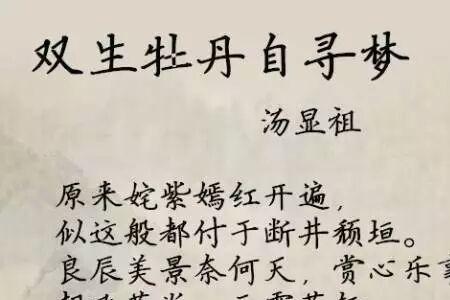 双生牡丹自寻梦
汤显祖
原来姹紫嫣红开遍，
似这般都付于断井颓垣。
良辰美景奈何天，赏心乐事